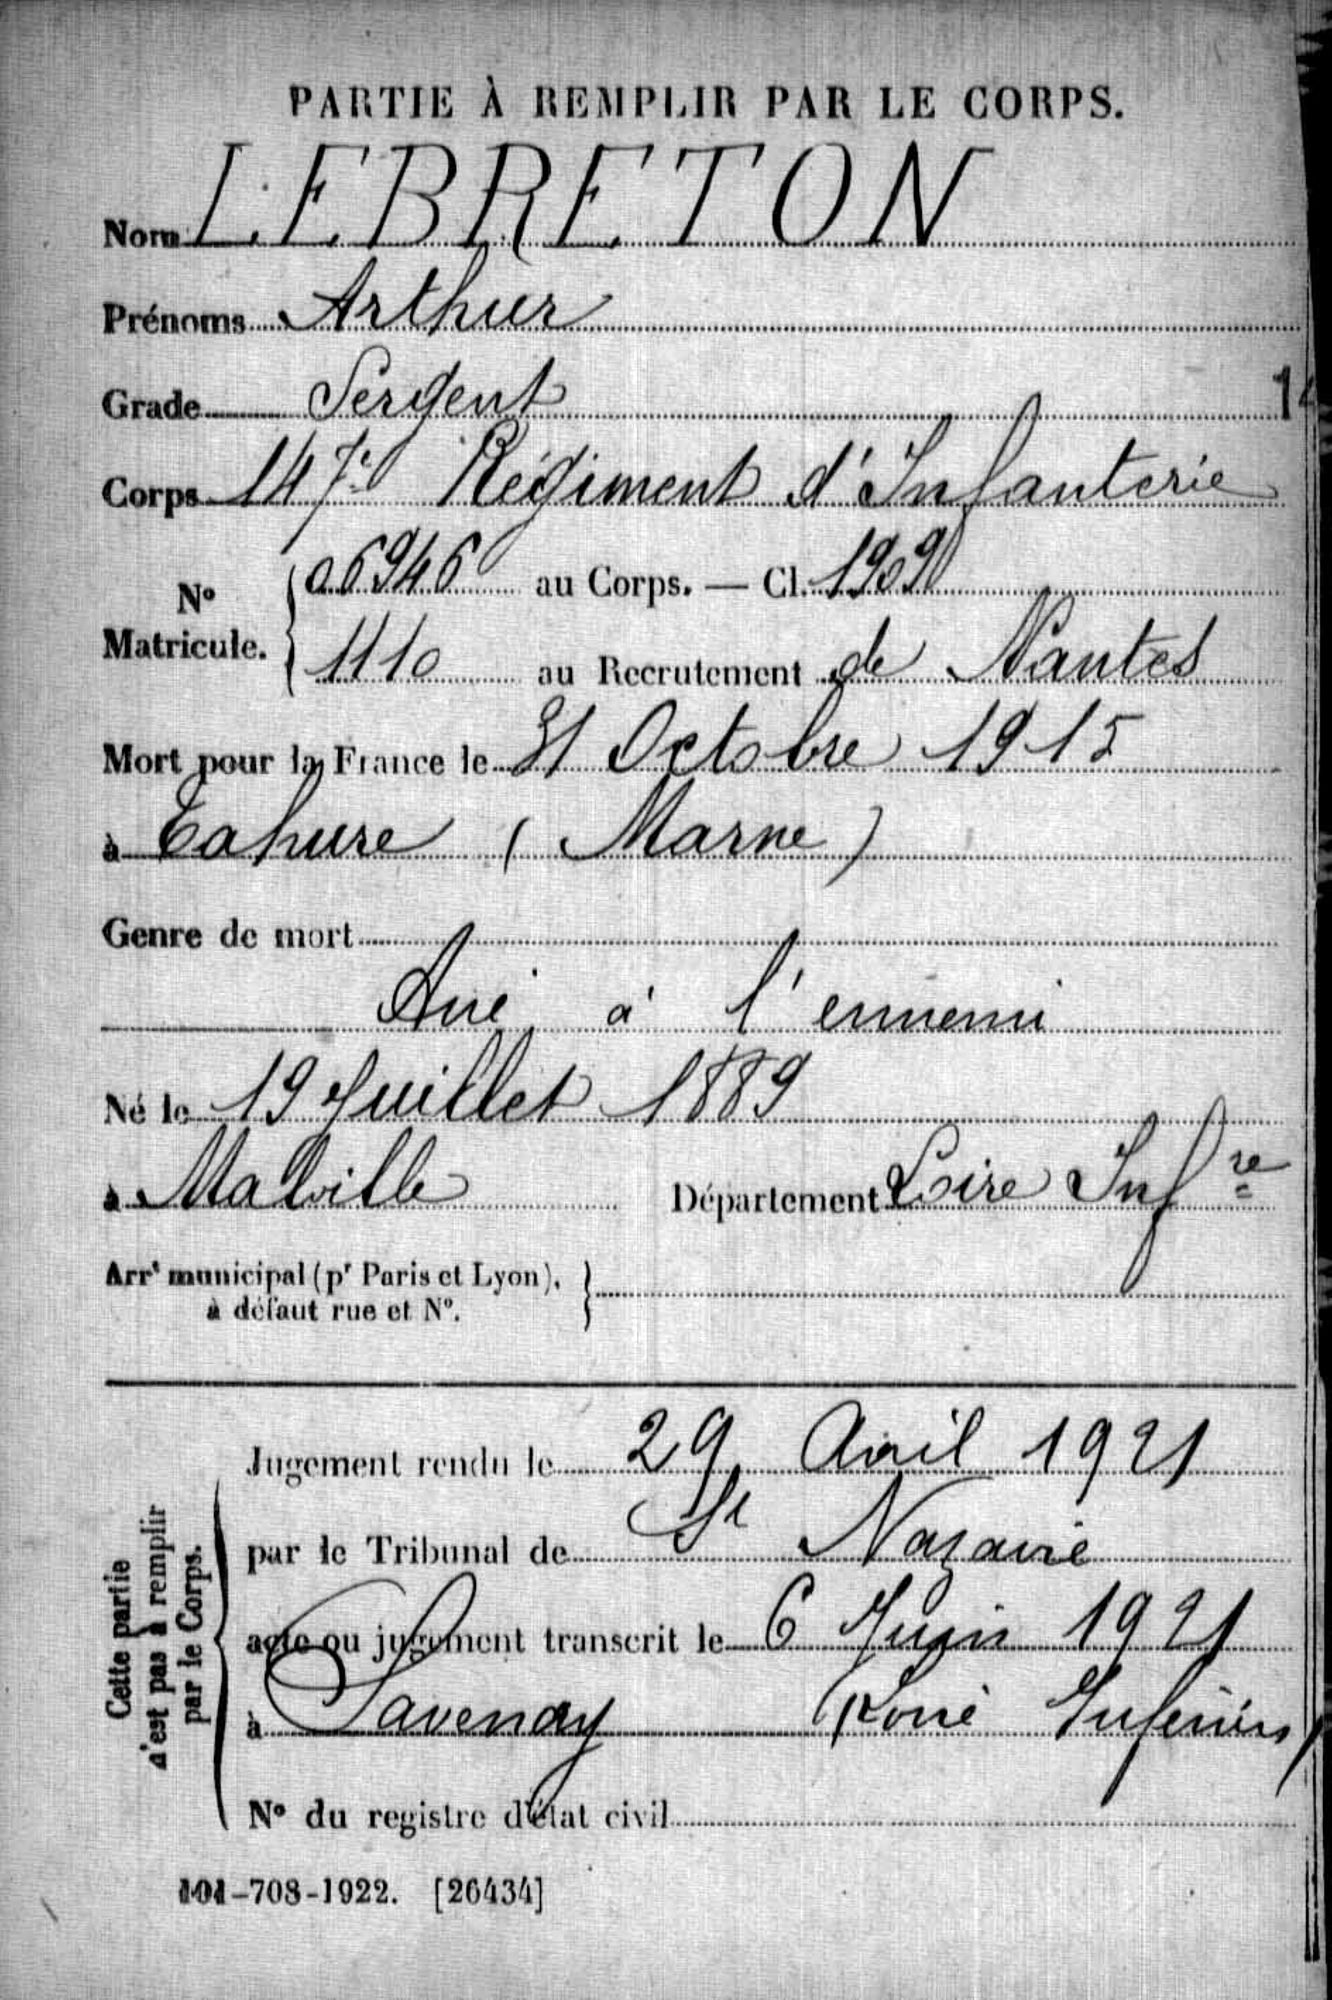 PARTIE À REMPLIR PAR LE CORPS.
Nom LEBRETON
Prénoms Arthur
Grade Sergent
Corps 147e Régiment d'Infanterie
N° Matricule. 06946 au Corps. — Cl. 1909
1110 au Recrutement de Nantes
Mort pour la France le 31 Octobre 1915
à Tahure (Marne)
Genre de mort
Tué à l'ennemi
Né le 19 Juillet 1889
à Malville Département Loire Infre
Arrt municipal (pr Paris et Lyon), à défaut rue et N°.
Cette partie n'est pas à remplir par le Corps.
Jugement rendu le 29 Avril 1921
par le Tribunal de St Nazaire
acte ou jugement transcrit le 6 Juin 1921
à Savenay (Loire Inférieure)
N° du registre d'état civil
101-708-1922. [26434]